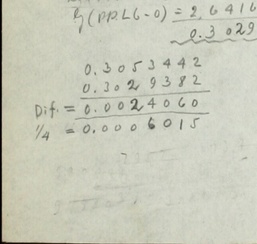 lg(PPL6-0) = 2.6416
0.3029
0.3053442
0.3029382
Dif. = 0.0024060
1/4 = 0.0006015